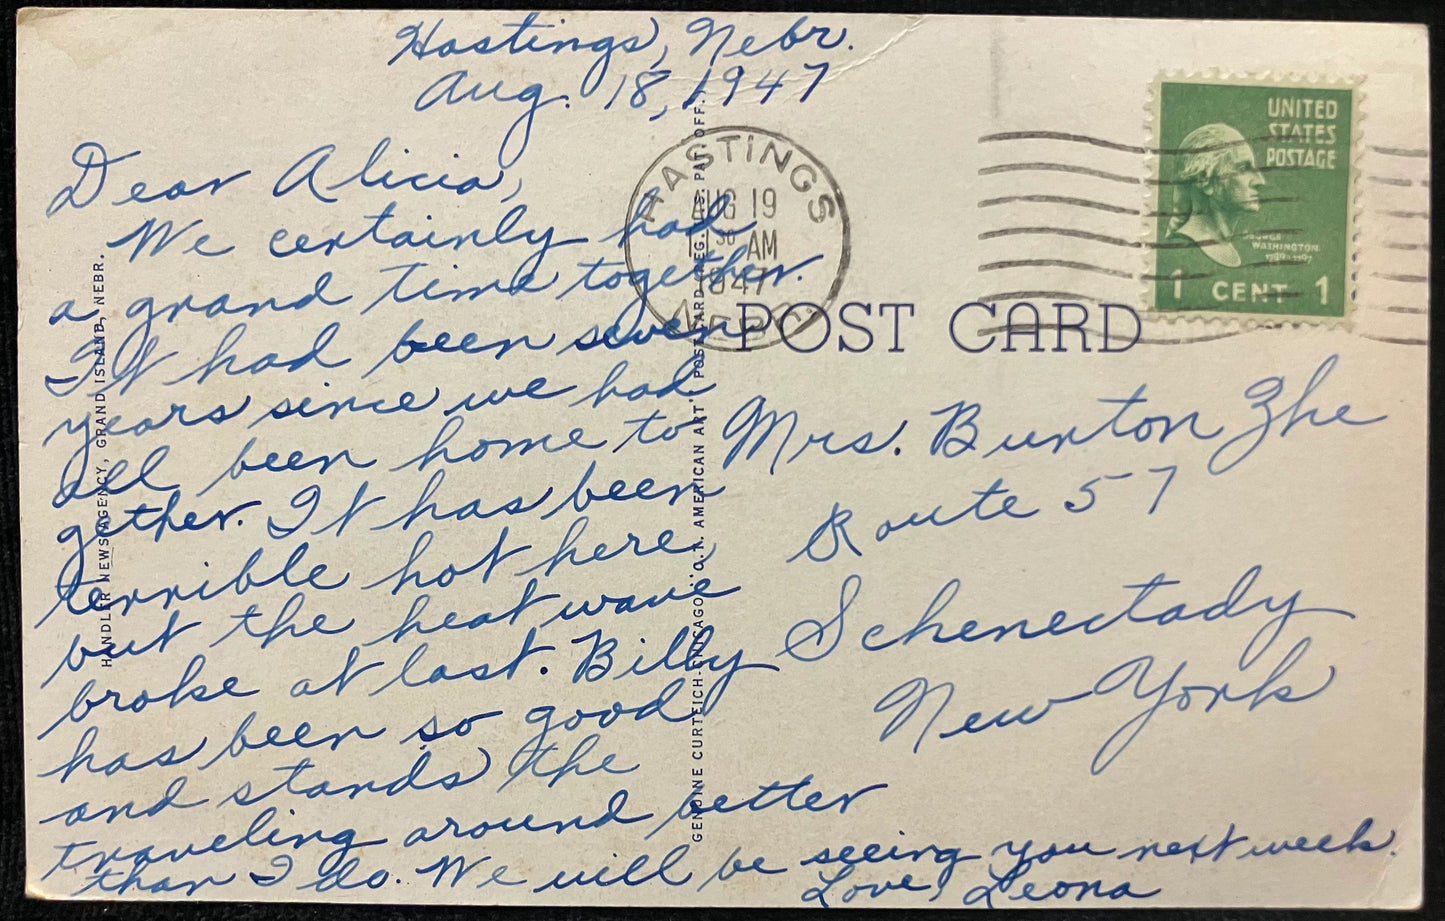 Hastings, Nebr.
Aug. 18, 1947
Dear Alicia,
We certainly had
a grand time together.
It had been seven
years since we had
all been home to
gether. It has been
terrible hot here,
but the heat wave
broke at last. Billy
has been so good
and stands the
traveling around better
than I do. We will be seeing you next week.
Love, Leona
HASTINGS
AUG 19
30 AM
1947
NEBR.
UNITED
STATES
POSTAGE
GEORGE
WASHINGTON
1789-1797
1 CENT 1
POST CARD
Mrs. Burton Zhe
Route 57
Schenectady
New York
HANDLER NEWS AGENCY, GRAND ISLAND, NEBR.
GENUINE CURTEICH-CHICAGO "C.T. AMERICAN ART" POST CARD (REG. U.S. PAT. OFF.)